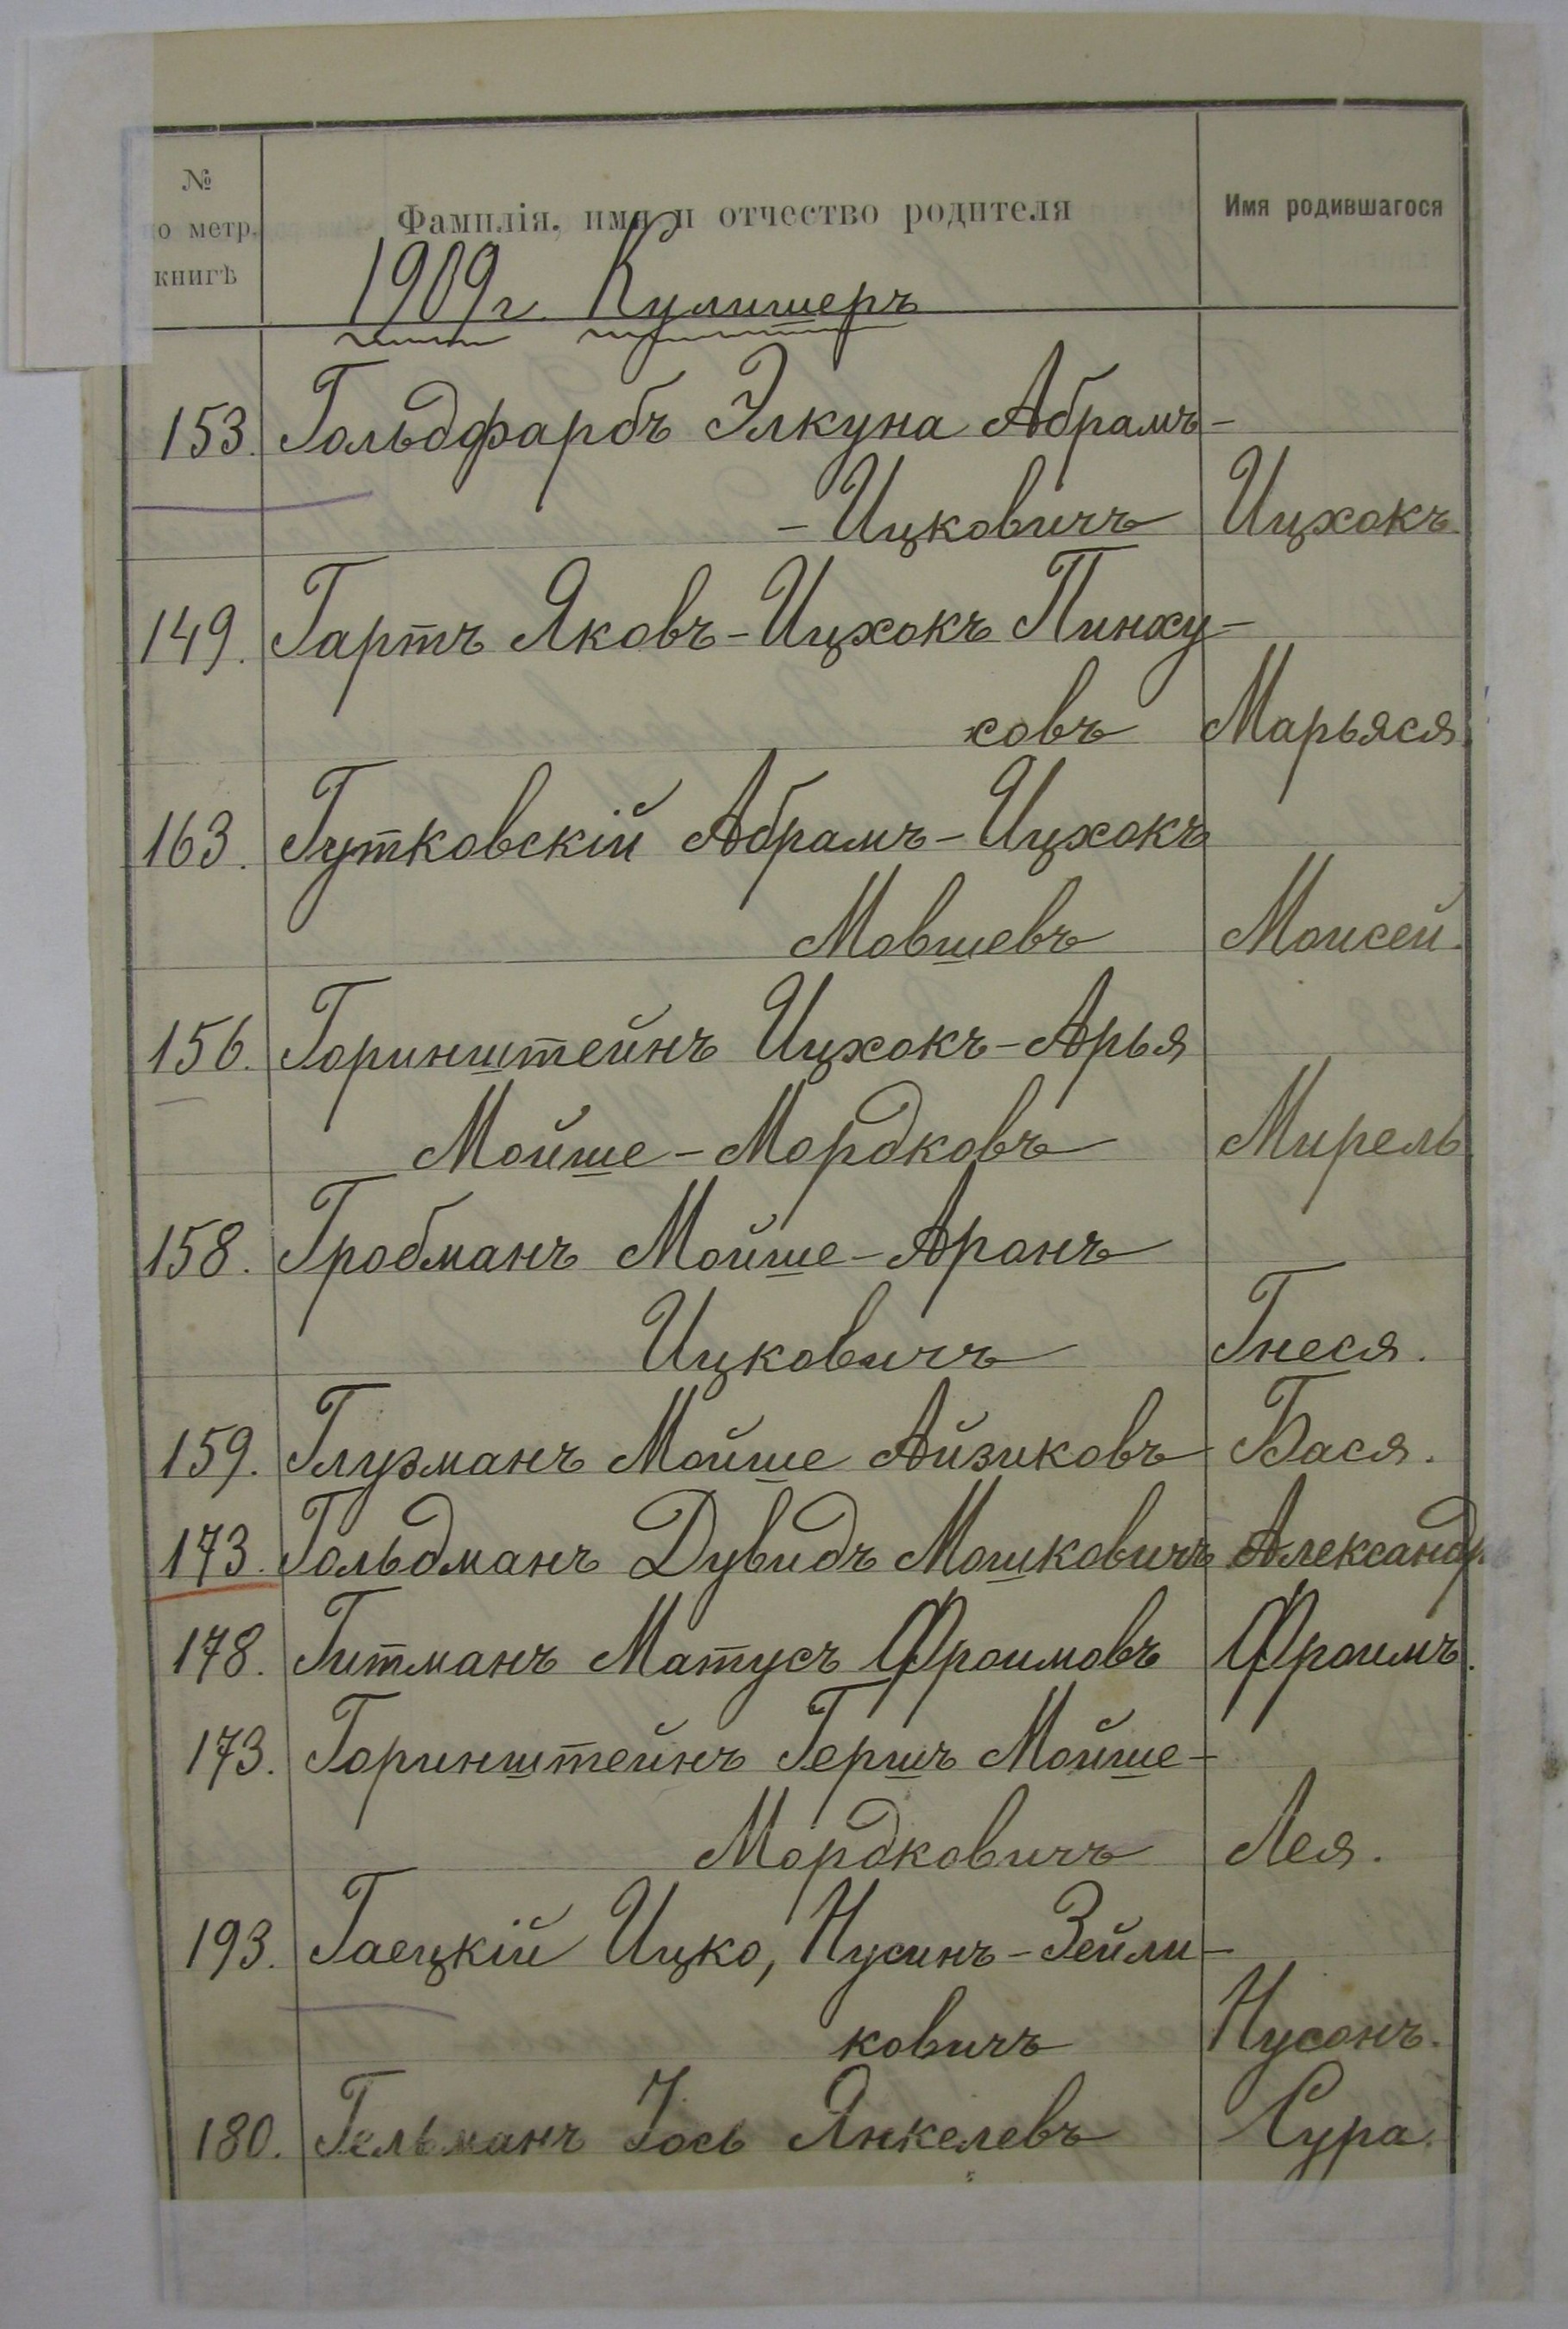 №
о метр.
книгѣ
Фамилія, имя и отчество родителя
Имя родившагося
1909 г. Кулишеръ
153. Гольдфарбъ Элкуна Абрамъ-
-Ицковичъ Ицхокъ.
149. Гартъ Яковъ-Ицхокъ Пинху-
совъ Марьяся.
163. Гутковскій Абрамъ-Ицхокъ
Мовшевъ Моисей.
156. Горинштейнъ Ицхокъ-Арья
Мойше-Мордковъ Мирель
158. Гробманъ Мойше-Аронъ
Ицковичъ Гнеся.
159. Глузманъ Мойше Айзиковъ Бася.
173. Гольдманъ Дувидъ Мошковичъ Александръ
178. Гитманъ Матусъ Фроимовъ Фроимъ.
173. Горинштейнъ Гершъ Мойше-
Мордковичъ Лея.
193. Гаецкій Ицко, Нусинъ-Зейли-
ковичъ Нусонъ.
180. Гельманъ Іось Янкелевъ Сура.